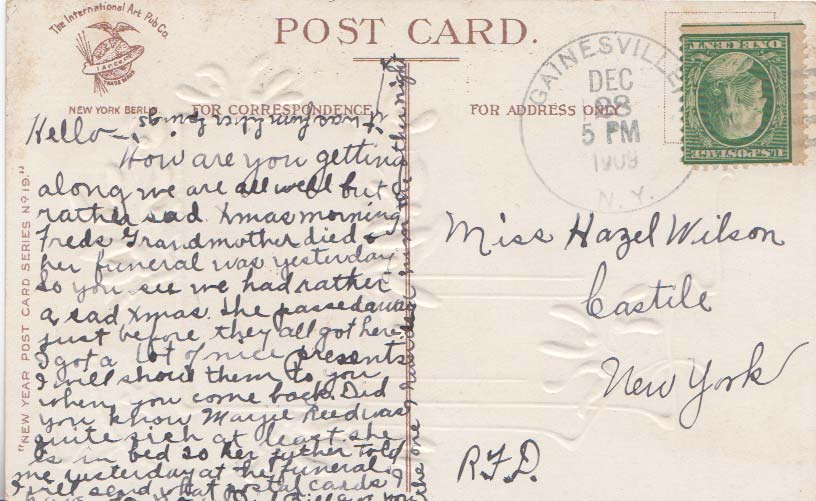 The International Art Pub Co.
TRADE MARK
NEW YORK BERLIN
POST CARD.
FOR CORRESPONDENCE
FOR ADDRESS ONLY
"NEW YEAR POST CARD SERIES Nº 19."
GAINESVILLE
DEC
28
5 PM
1909
N.Y.
U.S. POSTAGE
ONE CENT
Hello—
How are you getting
along we are all well but
rather sad Xmas morning
Freds Grandmother died &
her funeral was yesterday
so you see we had rather
a sad Xmas. She passed away
just before they all got here
I got a lot of nice presents
I will show them to you
when you come back. Did
you know Marjie Reed was
quite sick at least she
is in bed so her father told
me yesterday at the funeral.
I will send what postal cards I
you the one
Miss Hazel Wilson
Castile
New York
R.F.D.